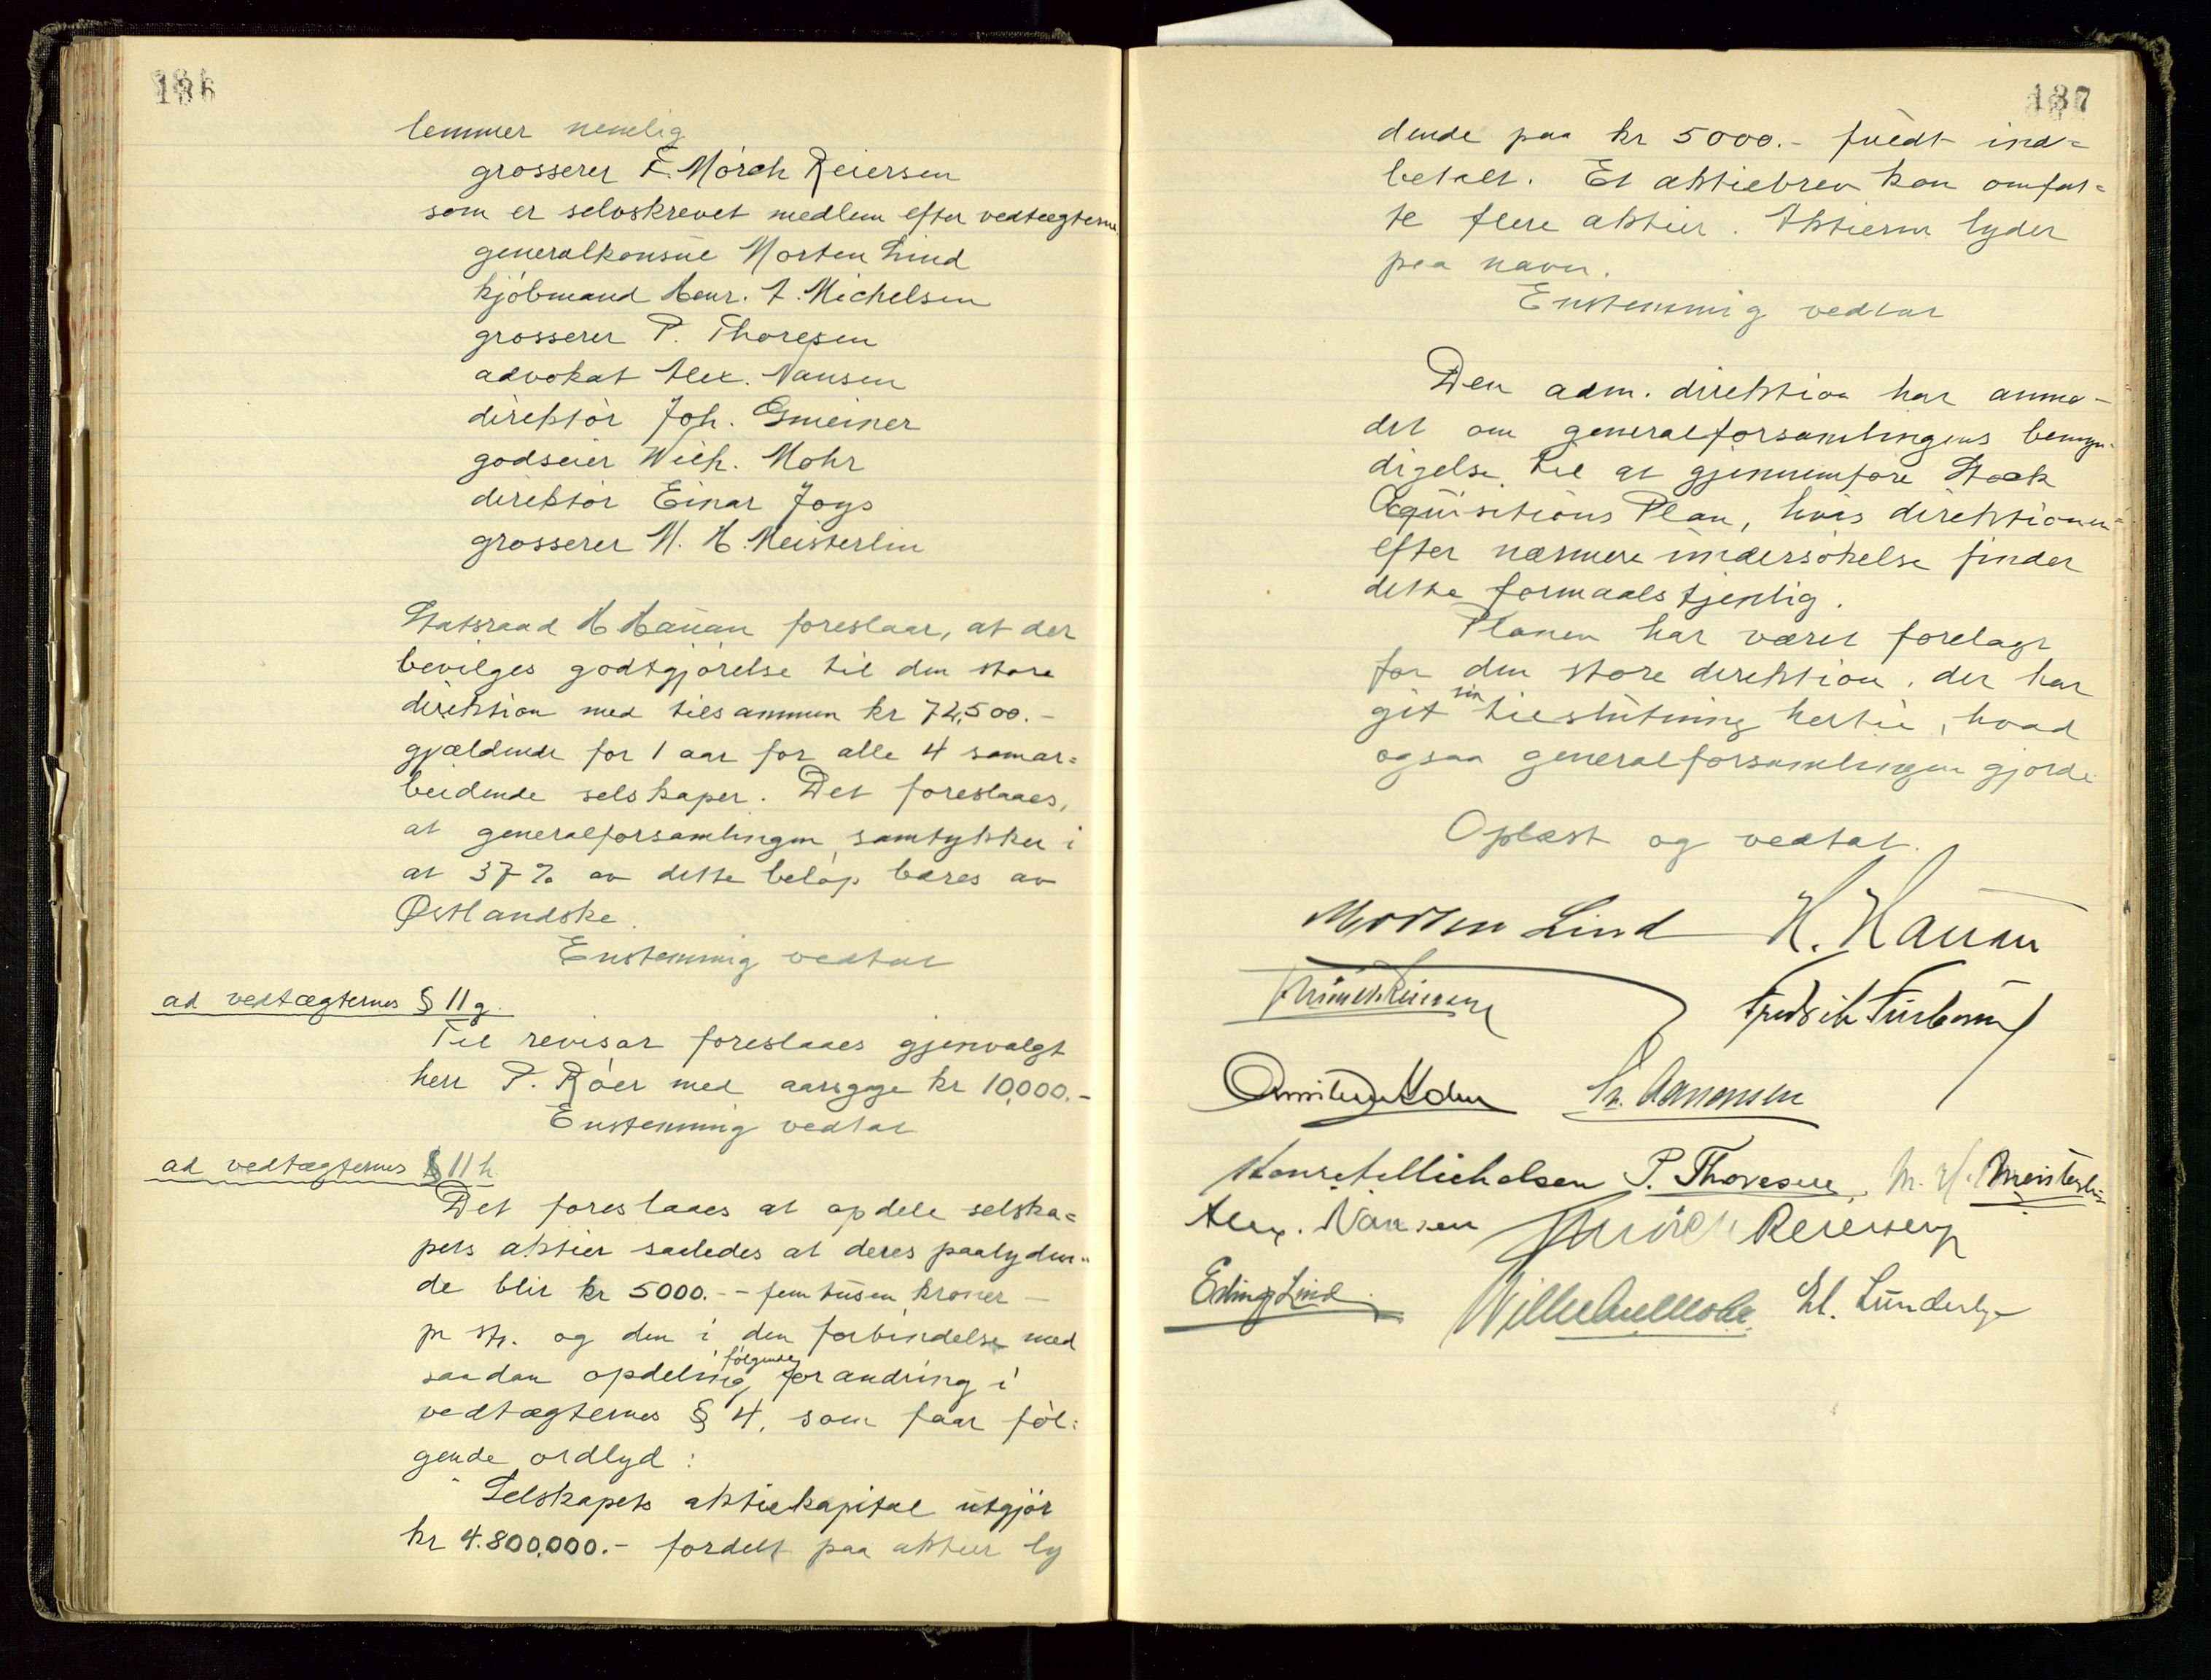 186
lemmer nemlig
grosserer F. Mörch Reiersen
som er selvskrevet medlem efter vedtægterne.
generalkonsul Morten Lind
kjöbmand Henr. A. Michelsen
grosserer P. Thoresen
advokat Alex. Nansen
direktör Joh. Gmeiner
godseier Wilh. Mohr
direktör Einar Joys
grosserer M. H. Meisterlin
Statsraad H Hauan foreslaar, at der
bevilges godtgjörelse til den store
direktion med tilsammen kr 72,500.-
gjældende for 1 aar for alle 4 samar=
beidende selskaper. Det foreslaaes,
at generalforsamlingen samtykker i
at 37 % av dette belöp bæres av
Østlandske.
Enstemmig vedtat
ad vedtægternes § 11 g.
Til revisor foreslaaes gjenvalgt
herr P. Röer med aarsgage kr 10,000.-
Enstemmig vedtat
ad vedtægternes § 11 h.
Det foreslaaes at opdele selska=
pets aktier saaledes at deres paalyden=
de blir kr 5000.- - femtusen kroner -
pr stk. og den i den forbindelse med
saadan opdeling følgende forandring i
vedtægternes § 4, som faar föl=
gende ordlyd:
"Selskapets aktiekapital utgjör
kr 4.800,000.- fordelt paa aktier ly
187
dende paa kr 5000.- fuldt ind=
betalt. Et aktiebrev kan omfat=
te flere aktier. Aktierne lyder
paa navn.
Enstemmig vedtat
Den adm. direktion har anmo-
det om generalforsamlingens bemyn-
digelse til at gjennemføre Stock
Aquisitions Plan, hvis direktionen
efter nærmere undersökelse finder
dette formaalstjenlig.
Planen har været forelagt
for den store direktion, der har
git sin tilslutning hertil, hvad
ogsaa generalforsamlingen gjorde
Oplæst og vedtat.
Morten Lind H. Hauan
Fredrik
Chr. Aanonsen
Henr A Michelsen P. Thoresen. M. H. Meisterlin
Alex. Nansen F Mörch Reiersen
Erling Lind Wilhelm Mohr